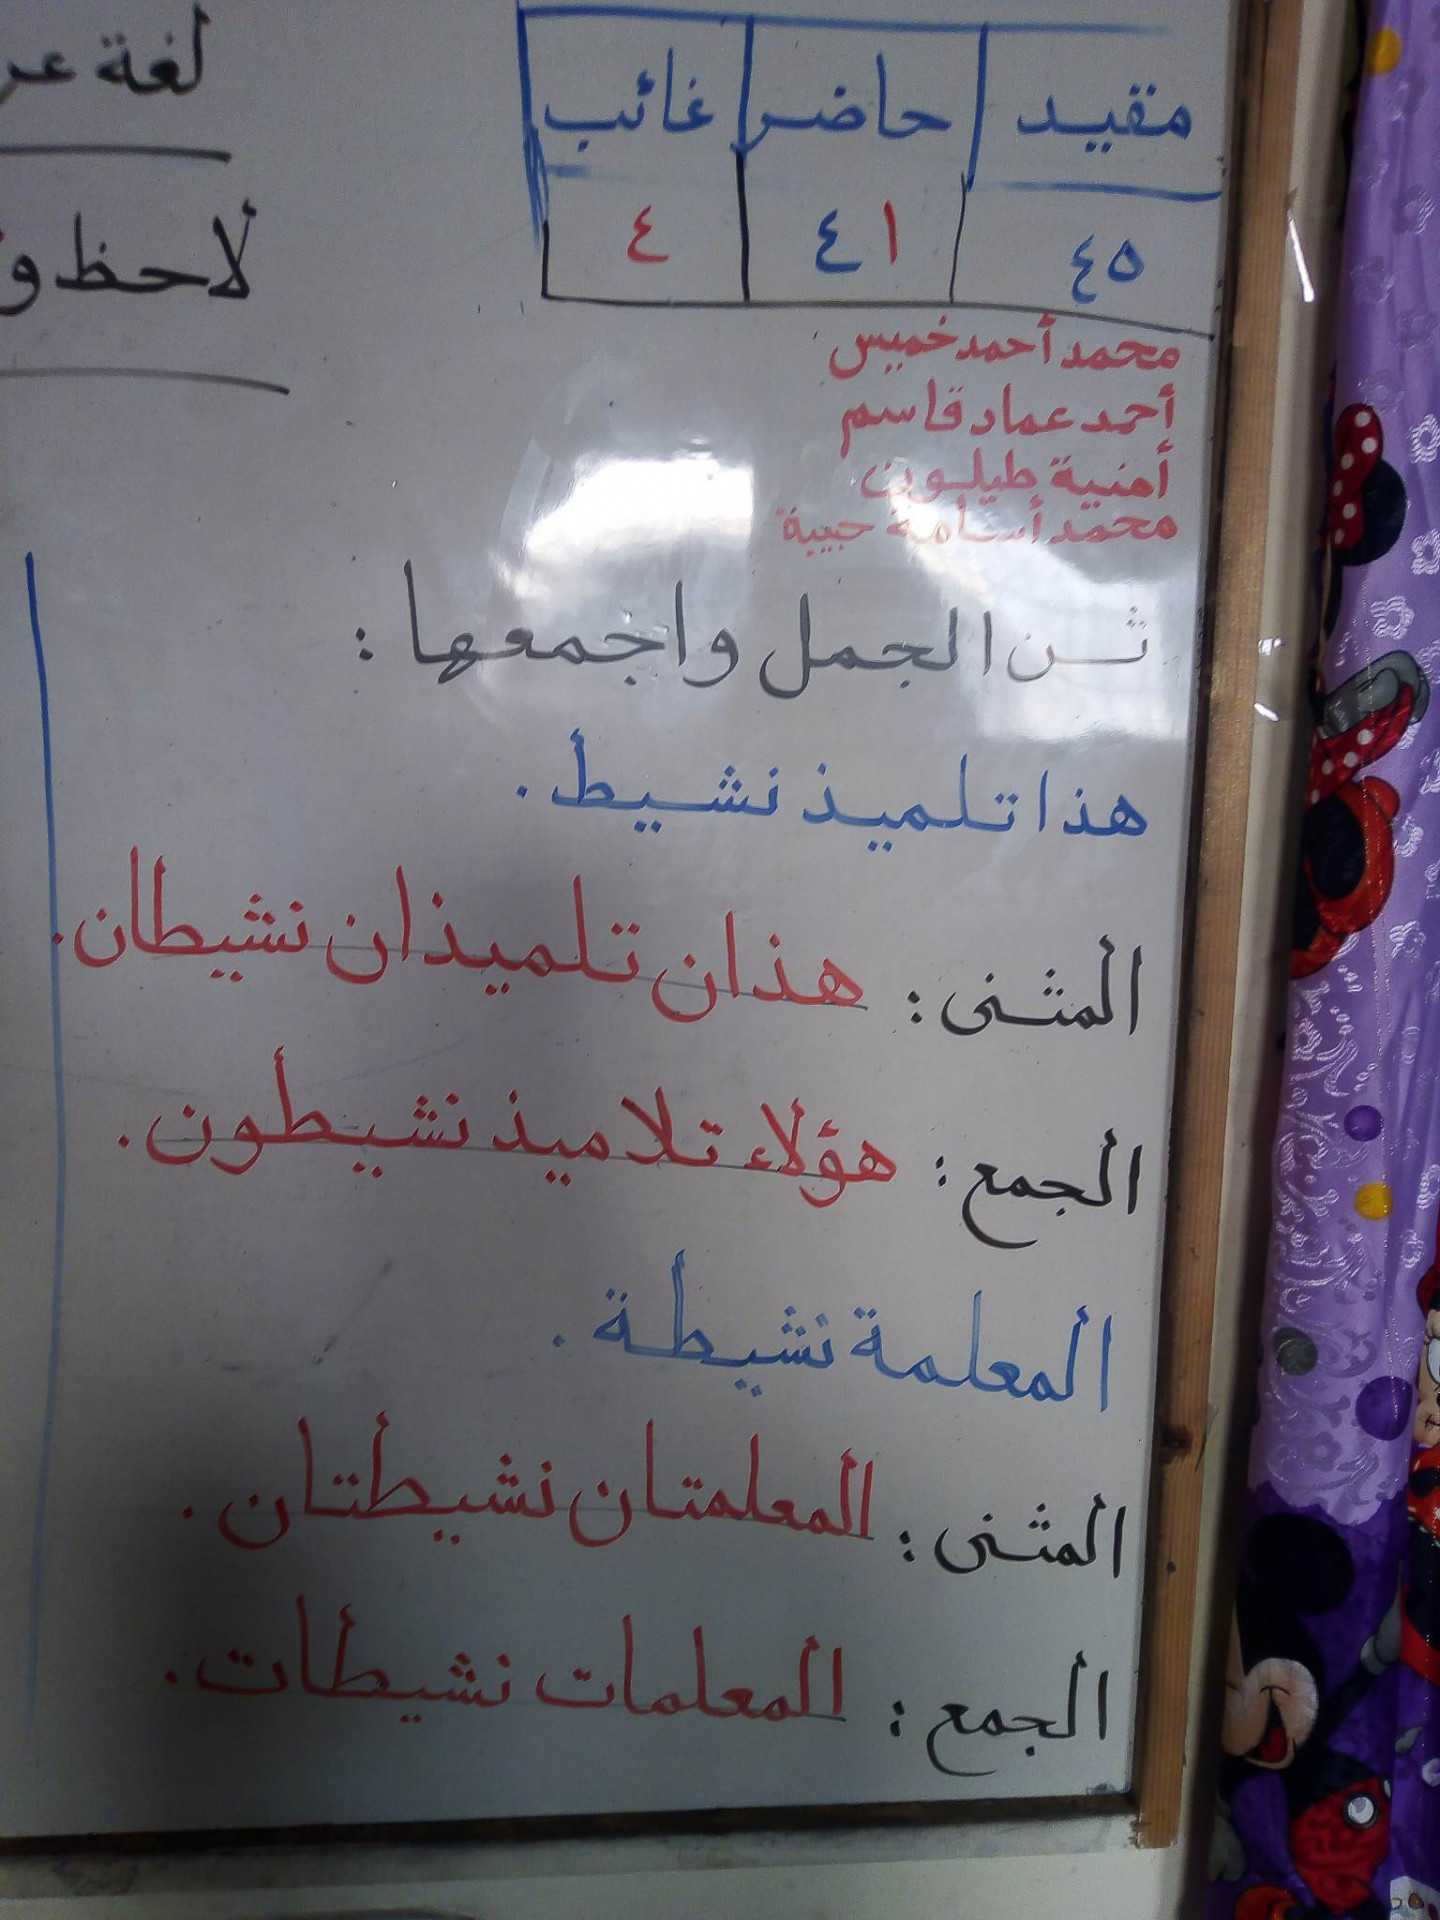 مقيد حاضر غائب
٤٥ ٤١ ٤
محمد أحمد خميس
أحمد عماد قاسم
أمنية طيلون
محمد أسامة حبيبة
ثن الجمل واجمعها :
هذا تلميذ نشيط .
المثنى : هذان تلميذان نشيطان .
الجمع : هؤلاء تلاميذ نشيطون .
المعلمة نشيطة .
المثنى : المعلمتان نشيطتان .
الجمع : المعلمات نشيطات .
لغة
لاحظ و